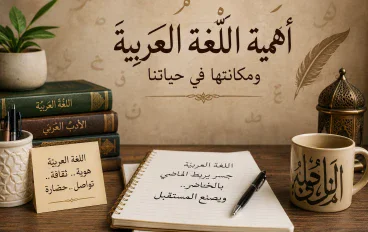 أهمية اللّغة العَربِيةَ
ومكانتها في حياتنا
اللغة العربيّة
الأدبُ العَربي
اللغة العربيّة
هوية .. ثقافة..
تواصل .. حضارة
اللغة العربيّة
جسر يربط الماضي
بالحاضر..
ويصنع المستقبل